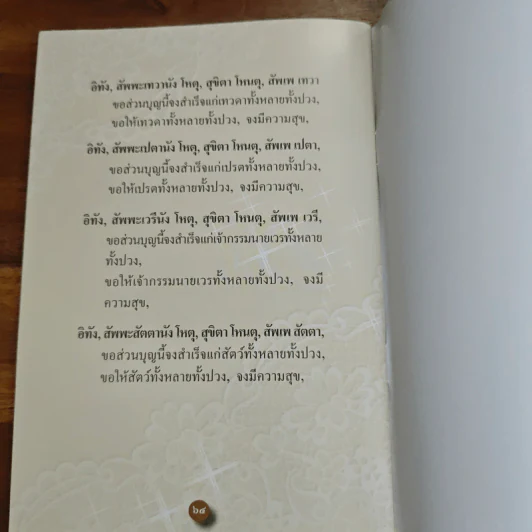 อิทัง, สัพพะเทวานัง โหตุ, สุขิตา โหนตุ, สัพเพ เทวา
ขอส่วนบุญนี้จงสำเร็จแก่เทวดาทั้งหลายทั้งปวง,
ขอให้เทวดาทั้งหลายทั้งปวง, จงมีความสุข,
อิทัง, สัพพะเปตานัง โหตุ, สุขิตา โหนตุ, สัพเพ เปตา,
ขอส่วนบุญนี้จงสำเร็จแก่เปรตทั้งหลายทั้งปวง,
ขอให้เปรตทั้งหลายทั้งปวง, จงมีความสุข,
อิทัง, สัพพะเวรีนัง โหตุ, สุขิตา โหนตุ, สัพเพ เวรี,
ขอส่วนบุญนี้จงสำเร็จแก่เจ้ากรรมนายเวรทั้งหลาย
ทั้งปวง,
ขอให้เจ้ากรรมนายเวรทั้งหลายทั้งปวง, จงมี
ความสุข,
อิทัง, สัพพะสัตตานัง โหตุ, สุขิตา โหนตุ, สัพเพ สัตตา,
ขอส่วนบุญนี้จงสำเร็จแก่สัตว์ทั้งหลายทั้งปวง,
ขอให้สัตว์ทั้งหลายทั้งปวง, จงมีความสุข,
๖๘